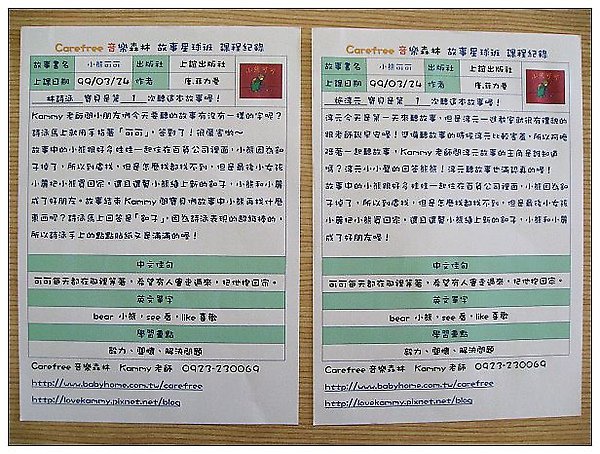 Carefree 音樂森林 故事星球班 課程紀錄
故事書名 小熊可可 出版社 上誼出版社
上課日期 99/03/24 作者 唐.菲力曼
林詩涵 寶貝是第 1 次聽這本故事喔！
Kammy 老師問小朋友們今天要聽的故事有沒有一樣的字呢？
詩涵馬上就用手指著「可可」，答對了！很厲害喲～
故事中的小熊跟好多娃娃一起住在百貨公司裡面，小熊因為釦
子掉了，所以到處找，但是怎麼找都找不到，但是最後小女孩
小麗把小熊買回家，還且還幫小熊縫上新的釦子，小熊和小麗
成了好朋友。故事結束 Kammy 問寶貝們故事中小熊再找什麼
東西呢？詩涵馬上回答是「釦子」，因為詩涵表現的超級棒的，
所以詩涵手上的點點貼紙又是滿滿的喔！
中文佳句
可可每天都在那裡等著，希望有人會走過來，把他抱回家。
英文單字
bear 小熊，see 看，like 喜歡
學習重點
毅力、觀察、解決問題
Carefree 音樂森林 Kammy 老師 0923-230069
http://www.babyhome.com.tw/carefree
http://lovekammy.pixnet.net/blog
Carefree 音樂森林 故事星球班 課程紀錄
故事書名 小熊可可 出版社 上誼出版社
上課日期 99/03/24 作者 唐.菲力曼
寶貝是第 1 次聽這本故事喔！
淳元今天是第一天來上課，但是淳元一進教室就很有禮貌的
跟老師說早安喔！準備聽故事的時候淳元比較害羞，所以阿嬤
陪著一起聽故事，Kammy 老師問淳元故事的主角是誰知道
嗎？淳元小小聲的回答熊熊！淳元聽故事也滿認真的喔！
故事中的小熊跟好多娃娃一起住在百貨公司裡面，小熊因為釦
子掉了，所以到處找，但是怎麼都找不到，但是最後小女孩小
麗把小熊買回家，還且還幫小熊縫上新的釦子，小熊和小麗
成了好朋友喔！
中文佳句
可可每天都在那裡等著，希望有人會走過來，把他抱回家。
英文單字
bear 小熊，see 看，like 喜歡
學習重點
毅力、觀察、解決問題
Carefree 音樂森林 Kammy 老師 0923-230069
http://www.babyhome.com.tw/carefree
http://lovekammy.pixnet.net/blog